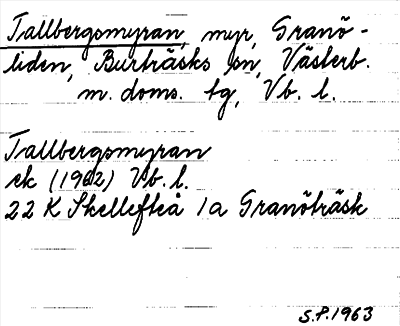 Tallbergsmyran, myr, Granö-
liden, Burträsks sn, Västerb.
m. doms. tg, Vb. l.
Tallbergsmyran
ek (1962) Vb. l.
22 K Skellefteå 1a Granöträsk
S.P. 1963